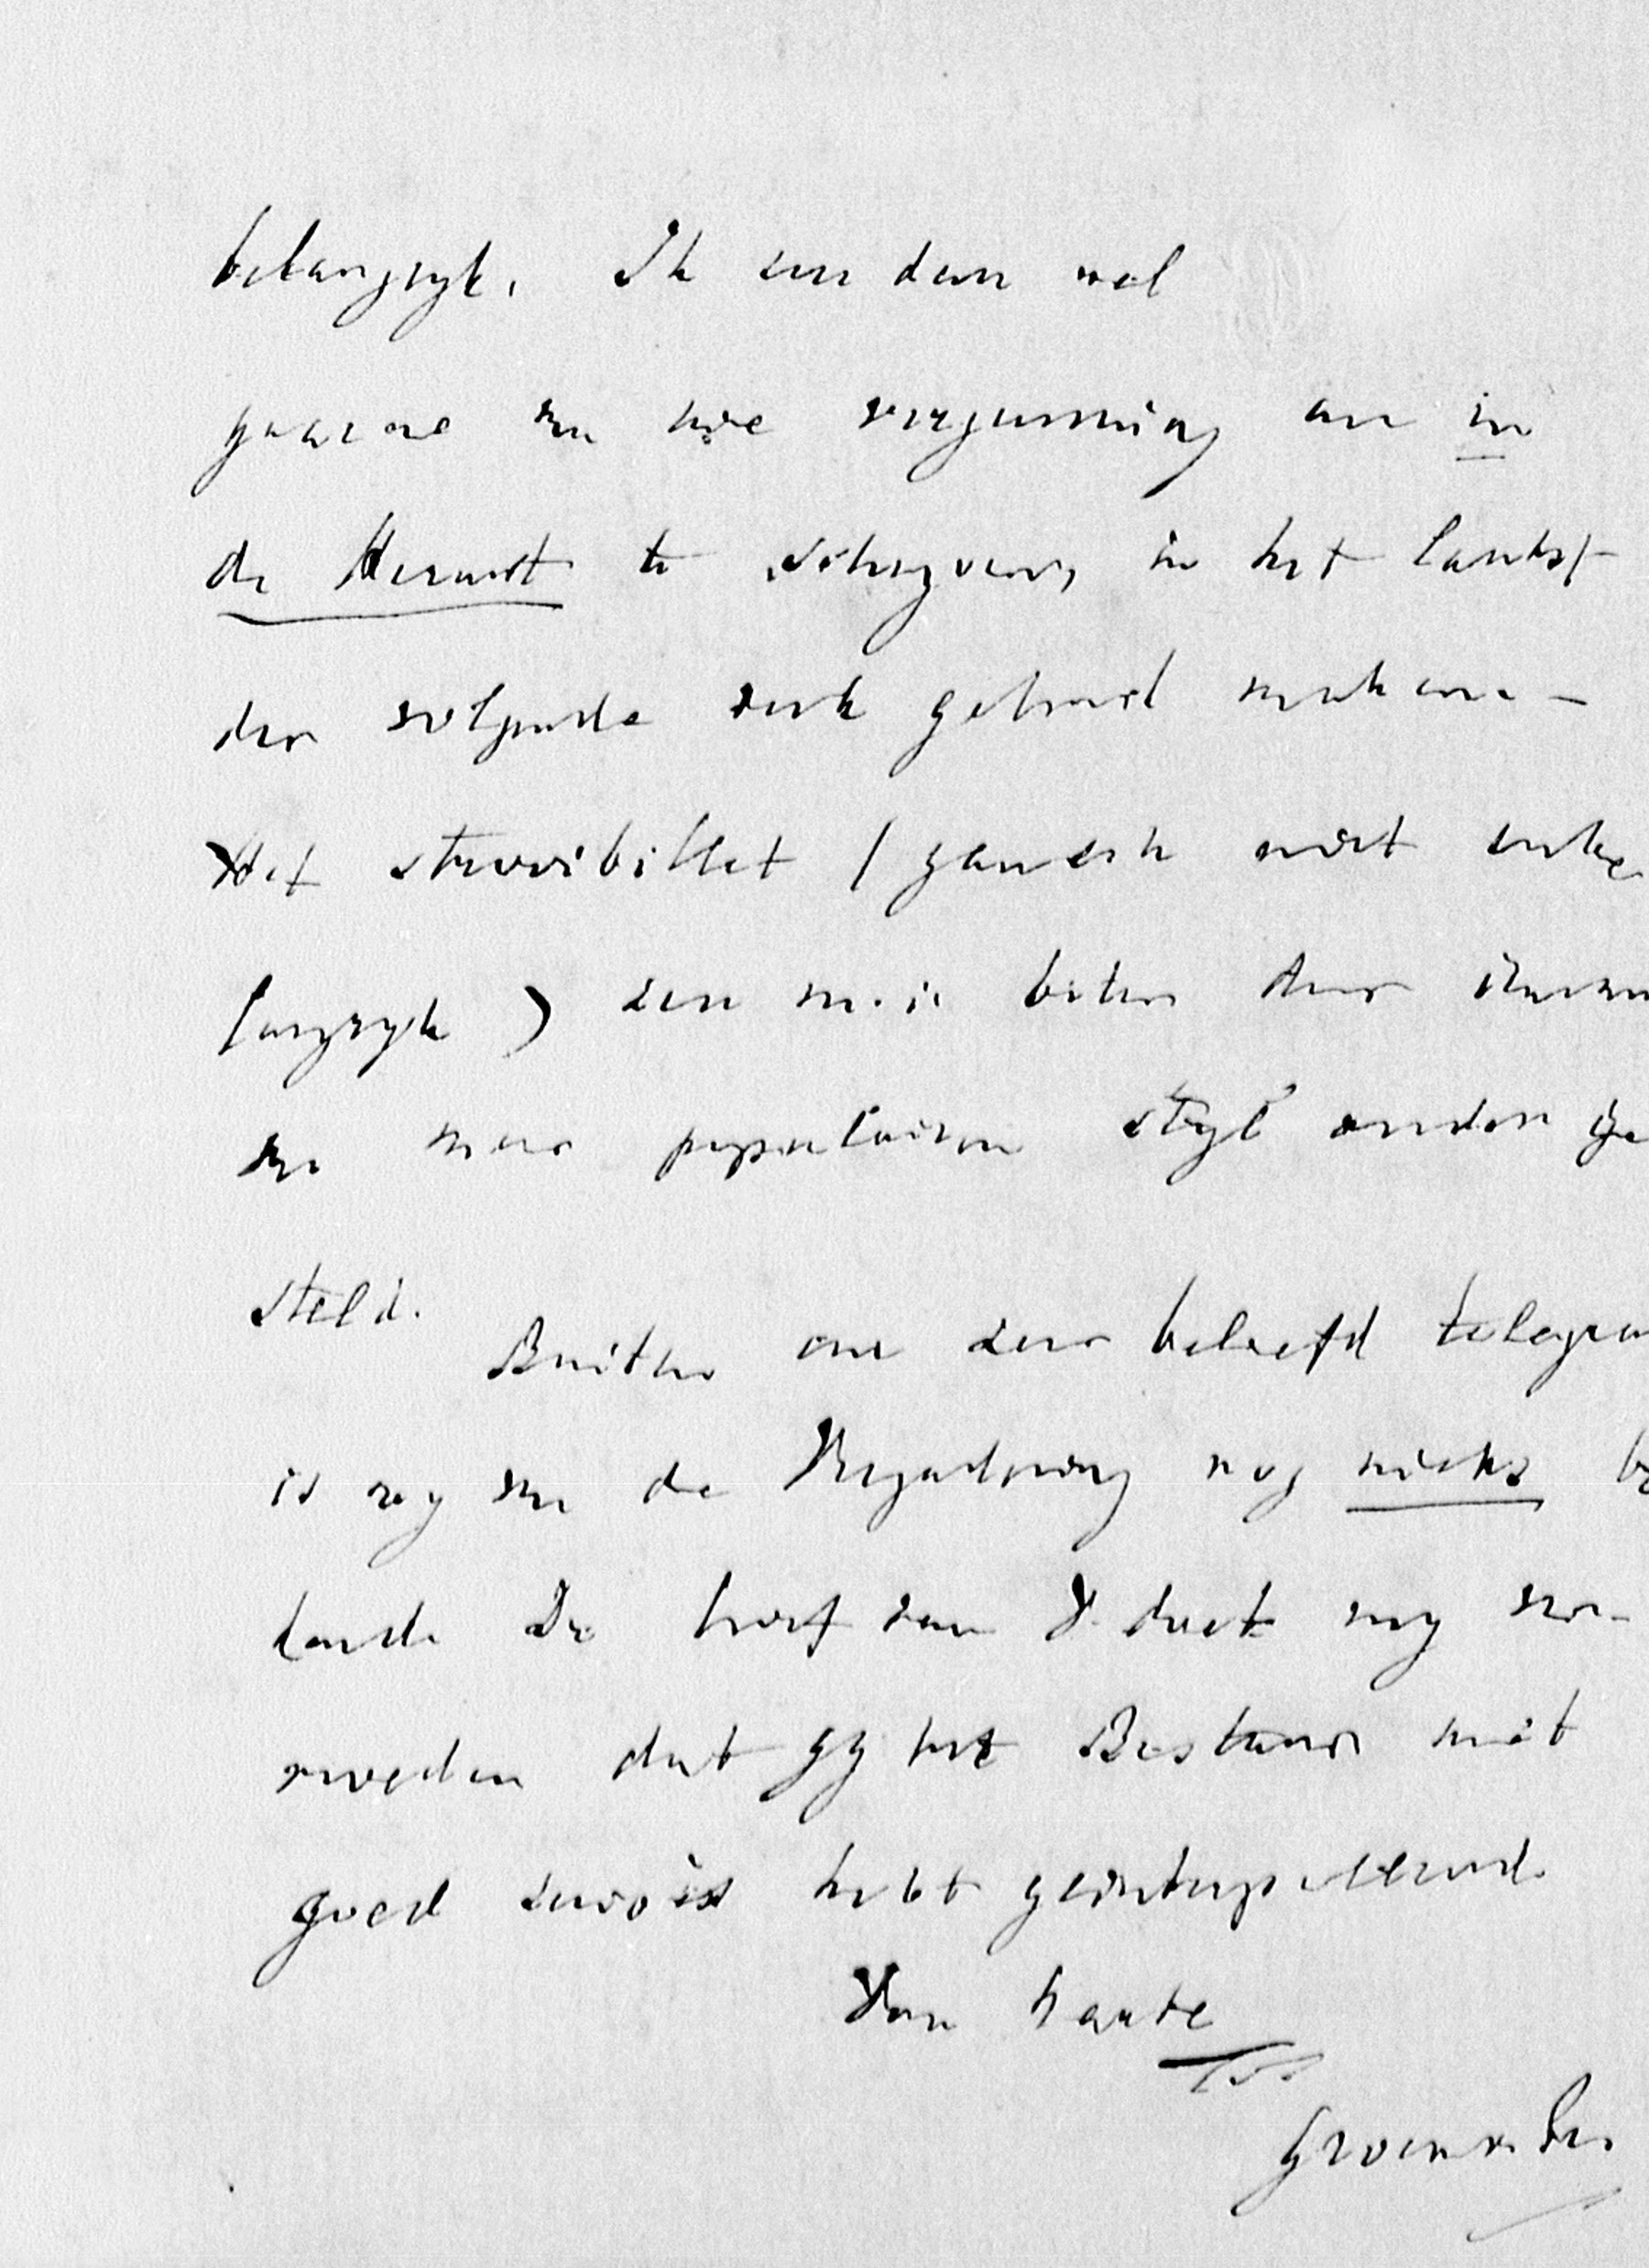 belangryk. Ik zou dan wel
gaarne van uwe vergunning om in
de Heraut te schryven, in het laatst
der volgende week gebruik maken –
Het strooibillet (gansch niet onbe
langryk) zou m.i. beter door iemand
in meer populairen styl worden ge
steld.
Buiten een zeer beleefd telegram
is my van de Vergadering nog niets be
kende De brief van V. doet my ver-
moeden dat gy het Bestuur met
goed succès hebt geinterpelleerd.
Van harte
TT
Groen v. Pr.